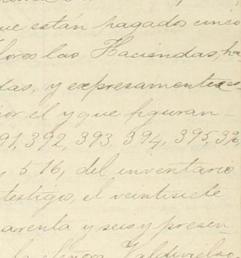 ue están pagados cinco
las Haciendas,
das, y expresamente
por el y que figuran
91, 392, 393, 394, 395, 39
, 5 16, del inventario
testigo, el veintisiete
arenta y seis y presen
Valdivielso